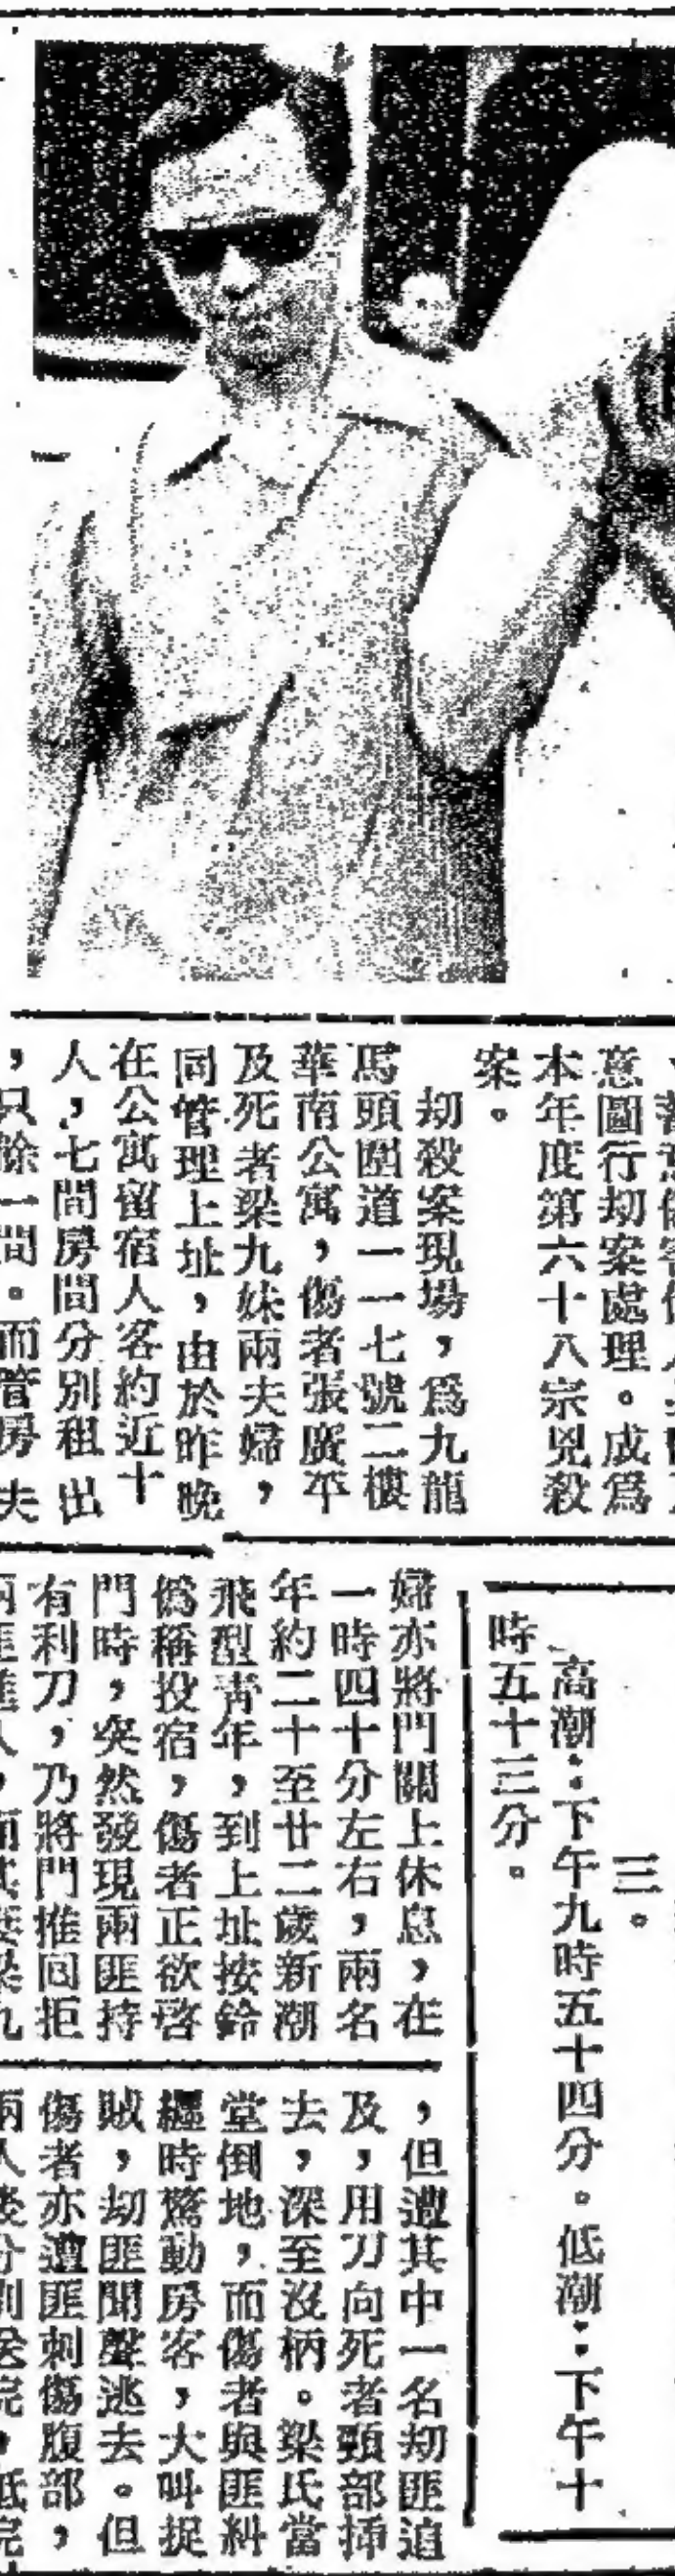 意圖行刼案處理。成爲
本年度第六十八宗兇殺
案。
刼殺案現場，爲九龍
馬頭圍道一一七號二樓
華南公寓，傷者張廣平
及死者梁九妹兩夫婦，
同管理上址，由於昨晚
在公寓留宿人客約近十
人，七間房間分別租出
，只餘一間。而管房夫
三。
高潮：下午九時五十四分。低潮：下午十
時五十三分。
婦亦將門關上休息，在
一時四十分左右，兩名
年約二十至廿二歲新潮
飛型青年，到上址按鈴
僞稱投宿，傷者正欲啓
門時，突然發現兩匪持
有利刀，乃將門推回拒
兩匪進入，而其妻梁九
，但遭其中一名刼匪追
及，用刀向死者頸部揷
去，深至沒柄。梁氏當
堂倒地，而傷者與匪糾
纒時驚動房客，大叫捉
賊，刼匪聞聲逃去。但
傷者亦遭匪刺傷腹部，
兩人後分別送院，抵院